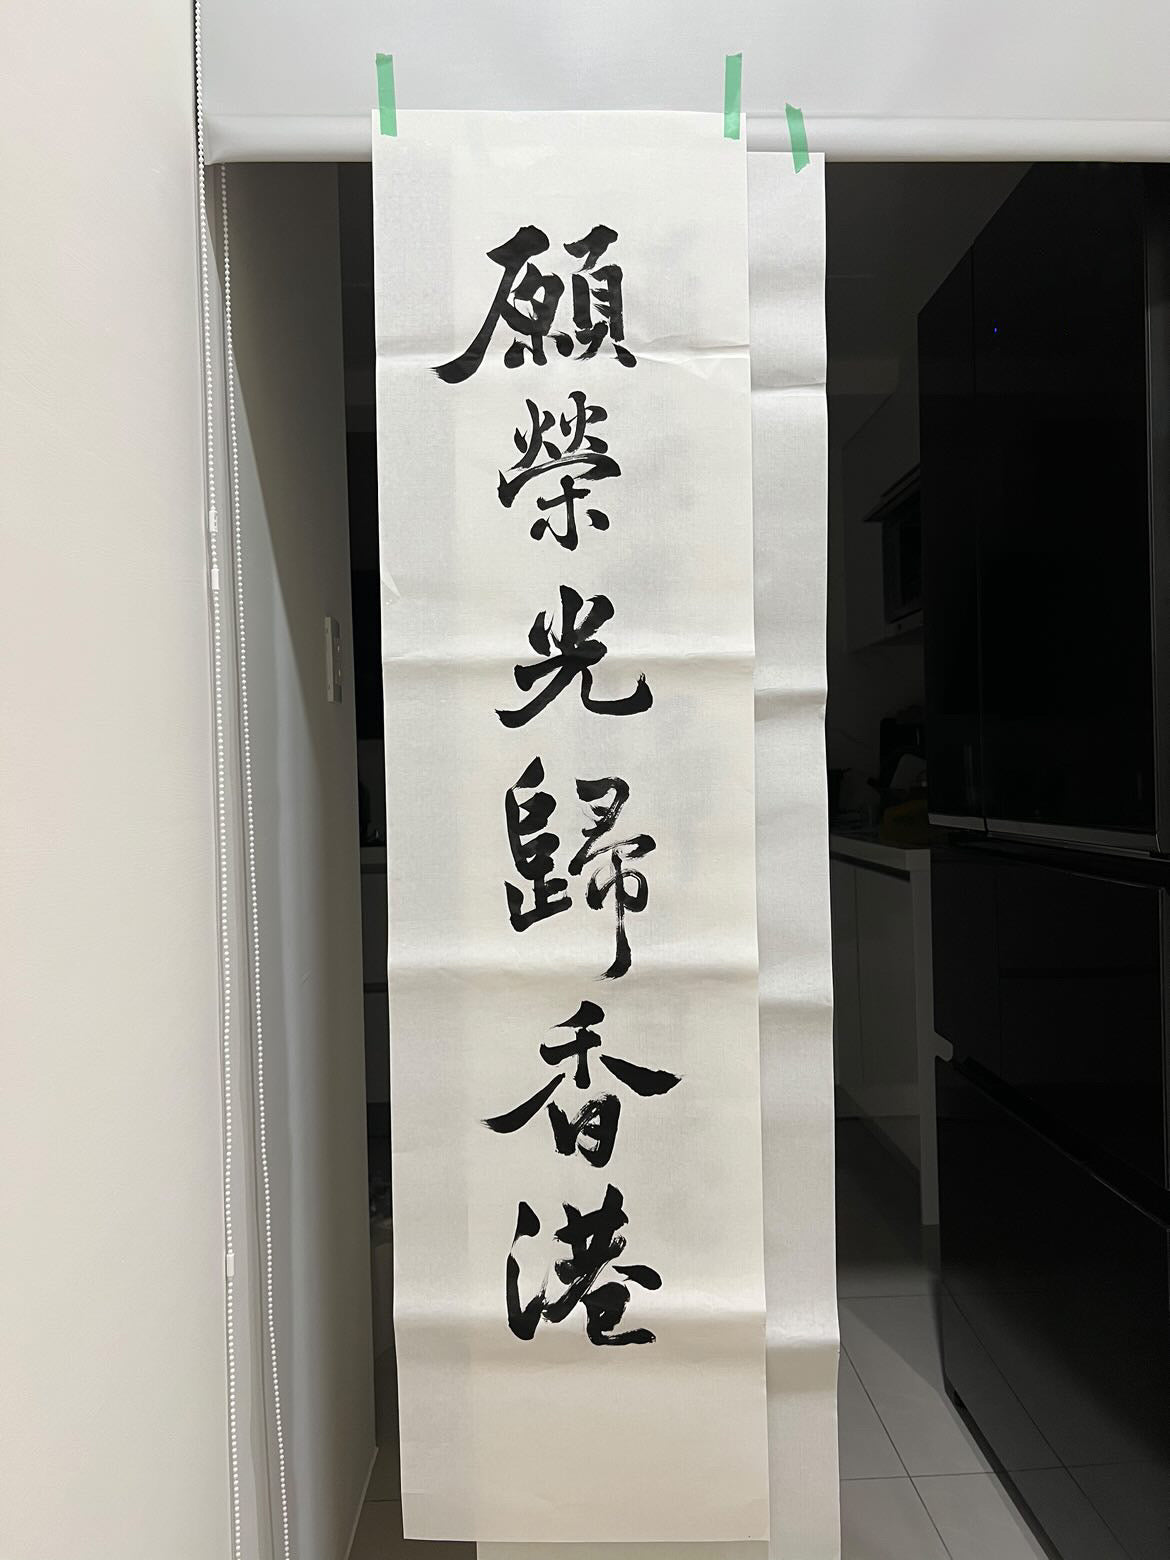 願榮光歸香港